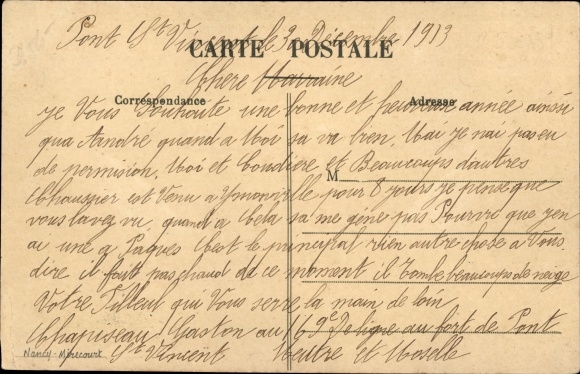 Pont St Vincent le 30 Décembre 1913
CARTE POSTALE
Chere Marraine
Correspondance
Adresse
Je Vous Souhaite une bonne et heureuse année ainsi
qua André quand a Moi sa va bien. Mai je nai pas eu
de permision, Moi et Coudière et Beaucoups dautres
M
Chaussier est Venu a pour 8 jours je pense que
vous lavez vu, quand a Cela sa me gène pas Pourvu que jen
ai une a Paques Cest le principal rien autre chose a Vous
dire il fait pas chaud de ce moment il tombe beaucoups de neige
Votre Filleul qui Vous serre la main de loin
Chapiseau Gaston au De ligne au fort de Pont
St Vincent Meurtre et Moselle
Nancy-Mirecourt